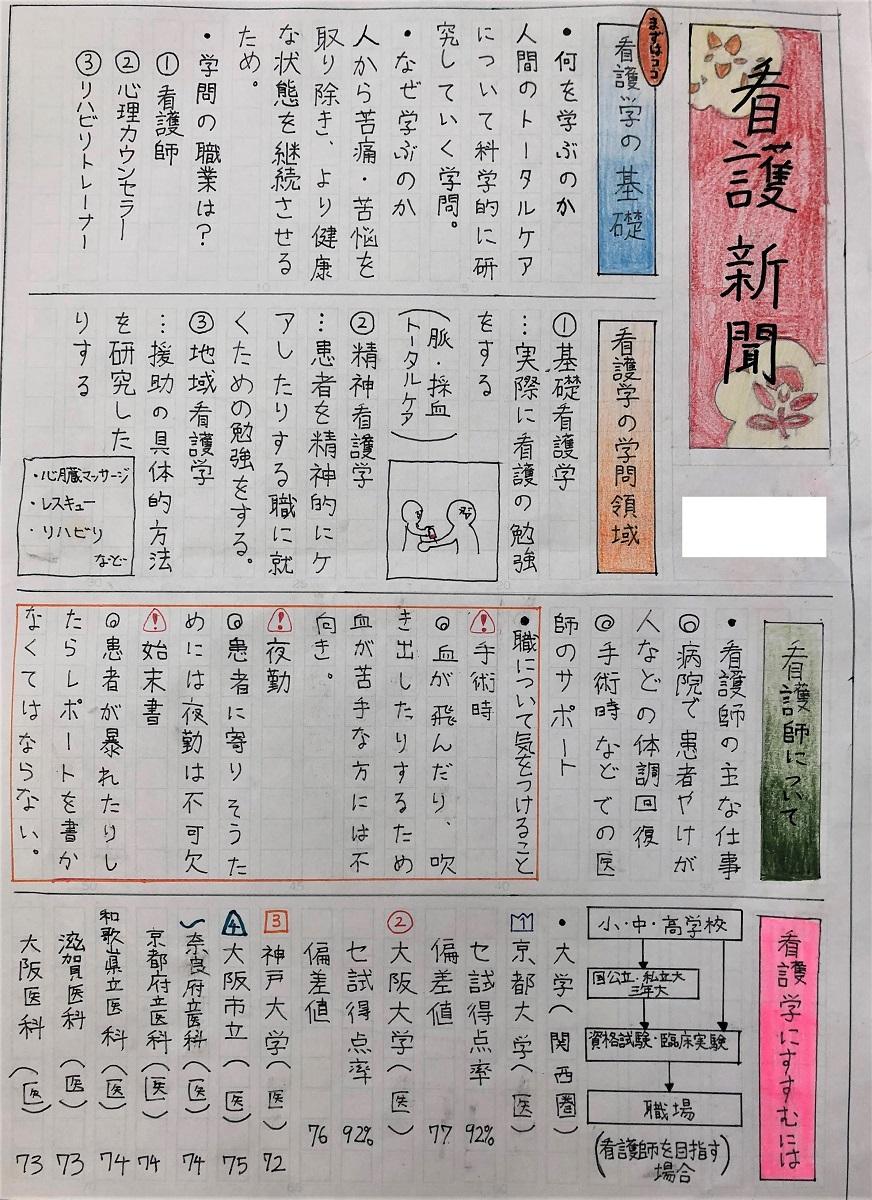 看護新聞
まずはココ
看護学の基礎
・何を学ぶのか
人間のトータルケア
について科学的に研
究していく学問。
・なぜ学ぶのか
人から苦痛・苦悩を
取り除き、より健康
な状態を継続させる
ため。
・学問の職業は？
① 看護師
② 心理カウンセラー
③ リハビリトレーナー
看護学の学問領域
① 基礎看護学
…実際に看護の勉強
をする
（脈・採血
トータルケア）
② 精神看護学
…患者を精神的にケ
アしたりする職に就
くための勉強をする。
③ 地域看護学
…援助の具体的方法
を研究した
りする
・心臓マッサージ
・レスキュー
・リハビリ
など
看護師について
・看護師の主な仕事
◎病院で患者やけが
人などの体調回復
◎手術時などでの医
師のサポート
・職について気をつけること
⚠手術時
◎血が飛んだり、吹
き出したりするため
血が苦手な方には不
向き。
⚠夜勤
◎患者に寄りそうた
めには夜勤は不可欠
⚠始末書
◎患者が暴れたりし
たらレポートを書か
なくてはならない。
看護学にすすむには
小・中・高学校
国公立・私立大
三年大
資格試験・臨床実験
職場
（看護師を目指す
場合）
・大学（関西圏）
1 京都大学（医）
セ試得点率 92%
偏差値 77
② 大阪大学（医）
セ試得点率 92%
偏差値 76
3 神戸大学（医） 72
4 大阪市立（医） 75
奈良府立医科（医） 74
京都府立医科（医） 74
和歌山県立医科（医） 74
滋賀医科（医） 73
大阪医科（医） 73